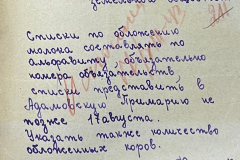 Списки по обложению
молока составлять по
альфавиту обязательно
номера обязательств,
списки представить в
Адамовскую Примарию не
позже 17 августа.
Указать также количество
обложенных коров.